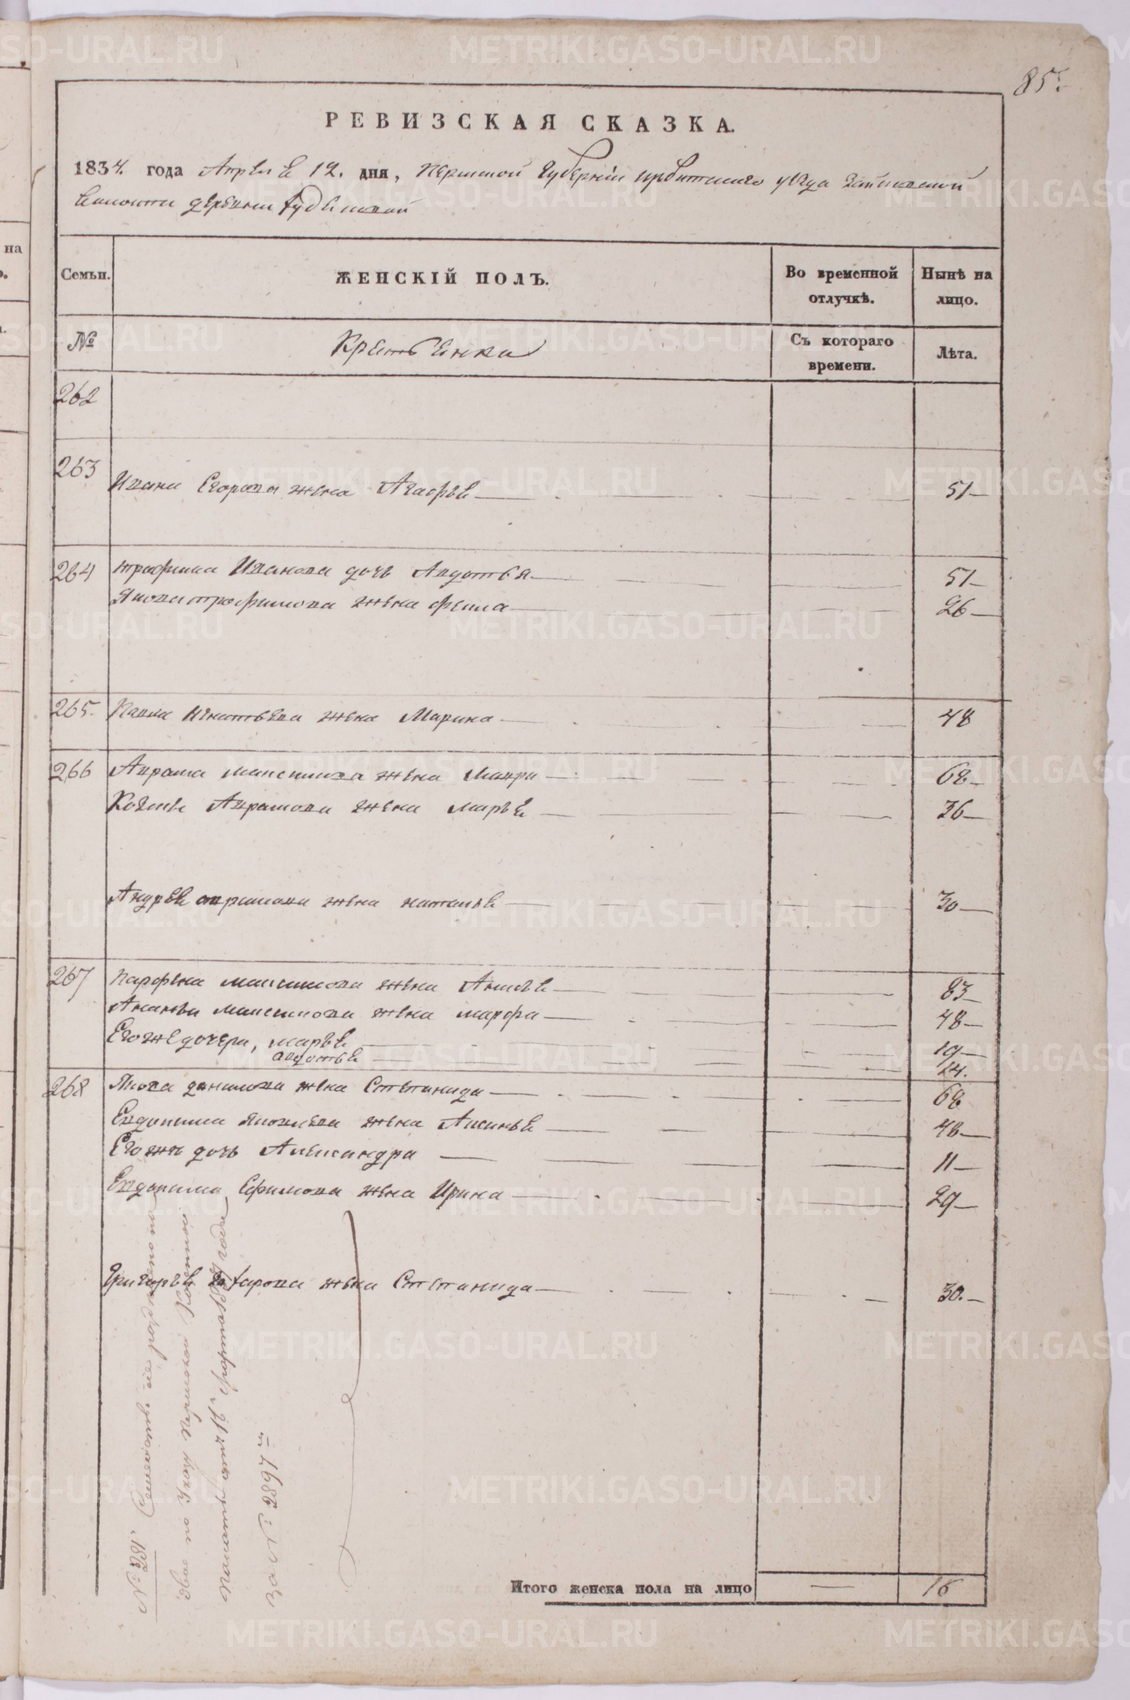 85.
РЕВИЗСКАЯ СКАЗКА.
1834. года Апреля 12. дня, Пермской Губернии Ирбитского уезда
волости деревни
Семьи. ЖЕНСКІЙ ПОЛЪ. Во временной отлучкѣ. Нынѣ на лицо.
№ Крестьянка Съ котораго времени. Лѣта.
262
263
Ивана Егорова жена Агафья 51
264 трофима Иванова дочь Авдотья 51
Якова трофимова жена фекла 26
265. Павла Игнатьева жена Марина 48
266 Аврама максимова жена Мавра 68
Аврамова жена марья 36
Андрея аврамова жена наталья 30
267 парфена максимова жена 83
Анания максимова жена марфа 48
Его же дочери, марья 19
авдотья 14.
268 Якова данилова жена Степанида 68
Евдокима Яковлева жена Аксинья 48
Его же дочь Александра 11
Евдокима Ефимова жена Ирина 29
Григорья жена Степанида 30.
№ 281. Семейство сие
двое по Указу Пермской Казенной
Палаты отъ 16 марта года
за № 2897
Итого женска пола на лицо — 16
на
METRIKI.GASO-URAL.RU